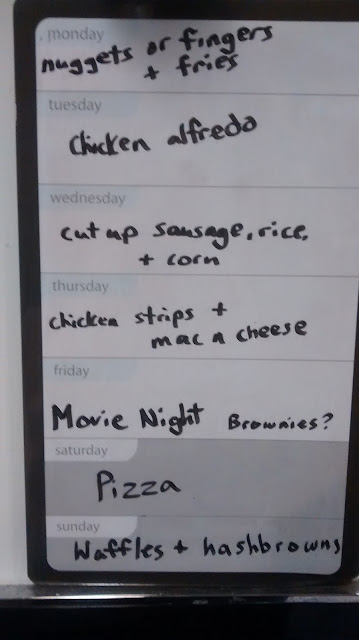 monday
nuggets or fingers
+ fries
tuesday
chicken alfredo
wednesday
cut up sausage, rice,
+ corn
thursday
chicken strips +
mac n cheese
friday
Movie Night Brownies?
saturday
Pizza
sunday
Waffles + hashbrowns